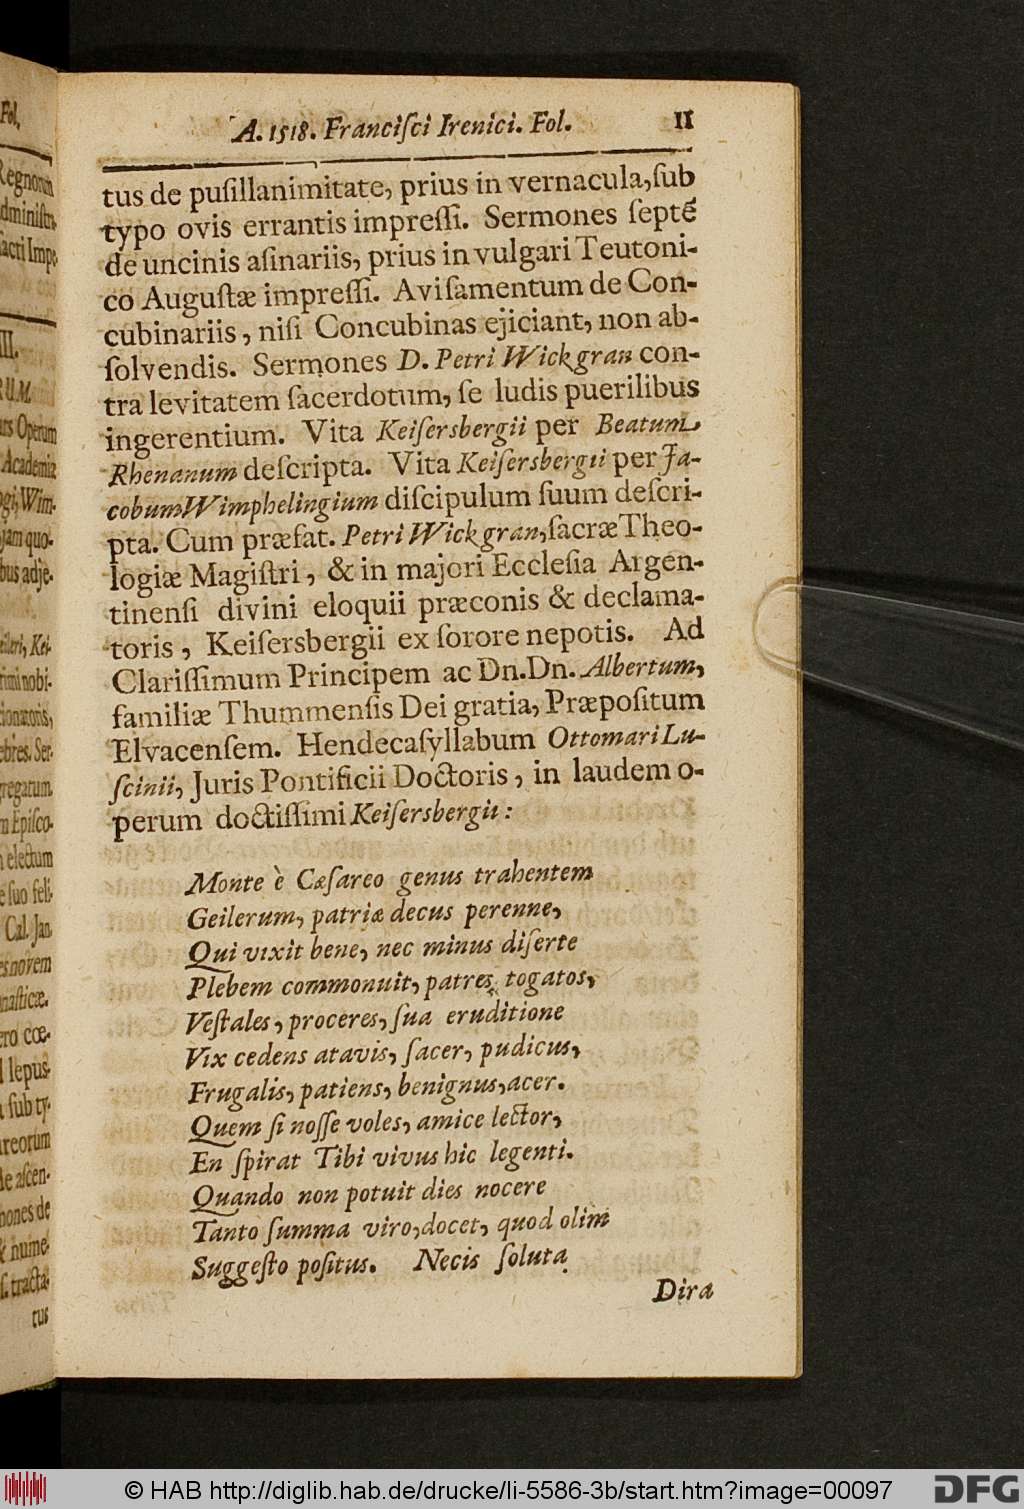 A. 1518. Franciſci Irenici. Fol. 11
tus de puſillanimitate, prius in vernacula, ſub
typo ovis errantis impreſſi. Sermones ſeptẽ
de uncinis aſinariis, prius in vulgari Teutoni-
co Auguſtæ impreſſi. Aviſamentum de Con-
cubinariis, niſi Concubinas ejiciant, non ab-
ſolvendis. Sermones D. Petri Wickgran con-
tra levitatem ſacerdotum, ſe ludis puerilibus
ingerentium. Vita Keiſersbergii per Beatum
Rhenanum deſcripta. Vita Keiſersbergii per Ja-
cobum Wimphelingium diſcipulum ſuum deſcri-
pta. Cum præfat. Petri Wickgran, ſacræ Theo-
logiæ Magiſtri, & in majori Eccleſia Argen-
tinenſi divini eloquii præconis & declama-
toris, Keiſersbergii ex ſorore nepotis. Ad
Clariſſimum Principem ac Dn. Dn. Albertum,
familiæ Thummenſis Dei gratia, Præpoſitum
Elvacenſem. Hendecaſyllabum Ottomari Lu-
ſcinii, Juris Pontificii Doctoris, in laudem o-
perum doctiſſimi Keiſersbergii:
Monte è Cæſareo genus trahentem
Geilerum, patriæ decus perenne,
Qui vixit bene, nec minus diſerte
Plebem commonuit, patres togatos,
Veſtales, proceres, ſua eruditione
Vix cedens atavis, ſacer, pudicus,
Frugalis, patiens, benignus, acer.
Quem ſi noſſe voles, amice lector,
En ſpirat Tibi vivus hic legenti.
Quando non potuit dies nocere
Tanto ſumma viro, docet, quod olim
Suggeſto poſitus. Necis ſoluta
Dira
Fol.
Regnorum
dminiſtr.
ſacti Impe.
III.
RUM.
ars Operum
Academia
ogi, Wim-
jam quo-
bus adje-
eileri, Kei-
rimi nobi-
cionatoris,
ebres. Ser-
gregatum
m Epiſco-
n electum
e ſuo feli-
Cal. Jan.
es novem
naſticæ.
ero cœ-
l lepus.
ſub ty-
reorum
de aſcen-
nones de
& nume-
ſ. tracta-
tus
© HAB http://diglib.hab.de/drucke/li-5586-3b/start.htm?image=00097
DFG